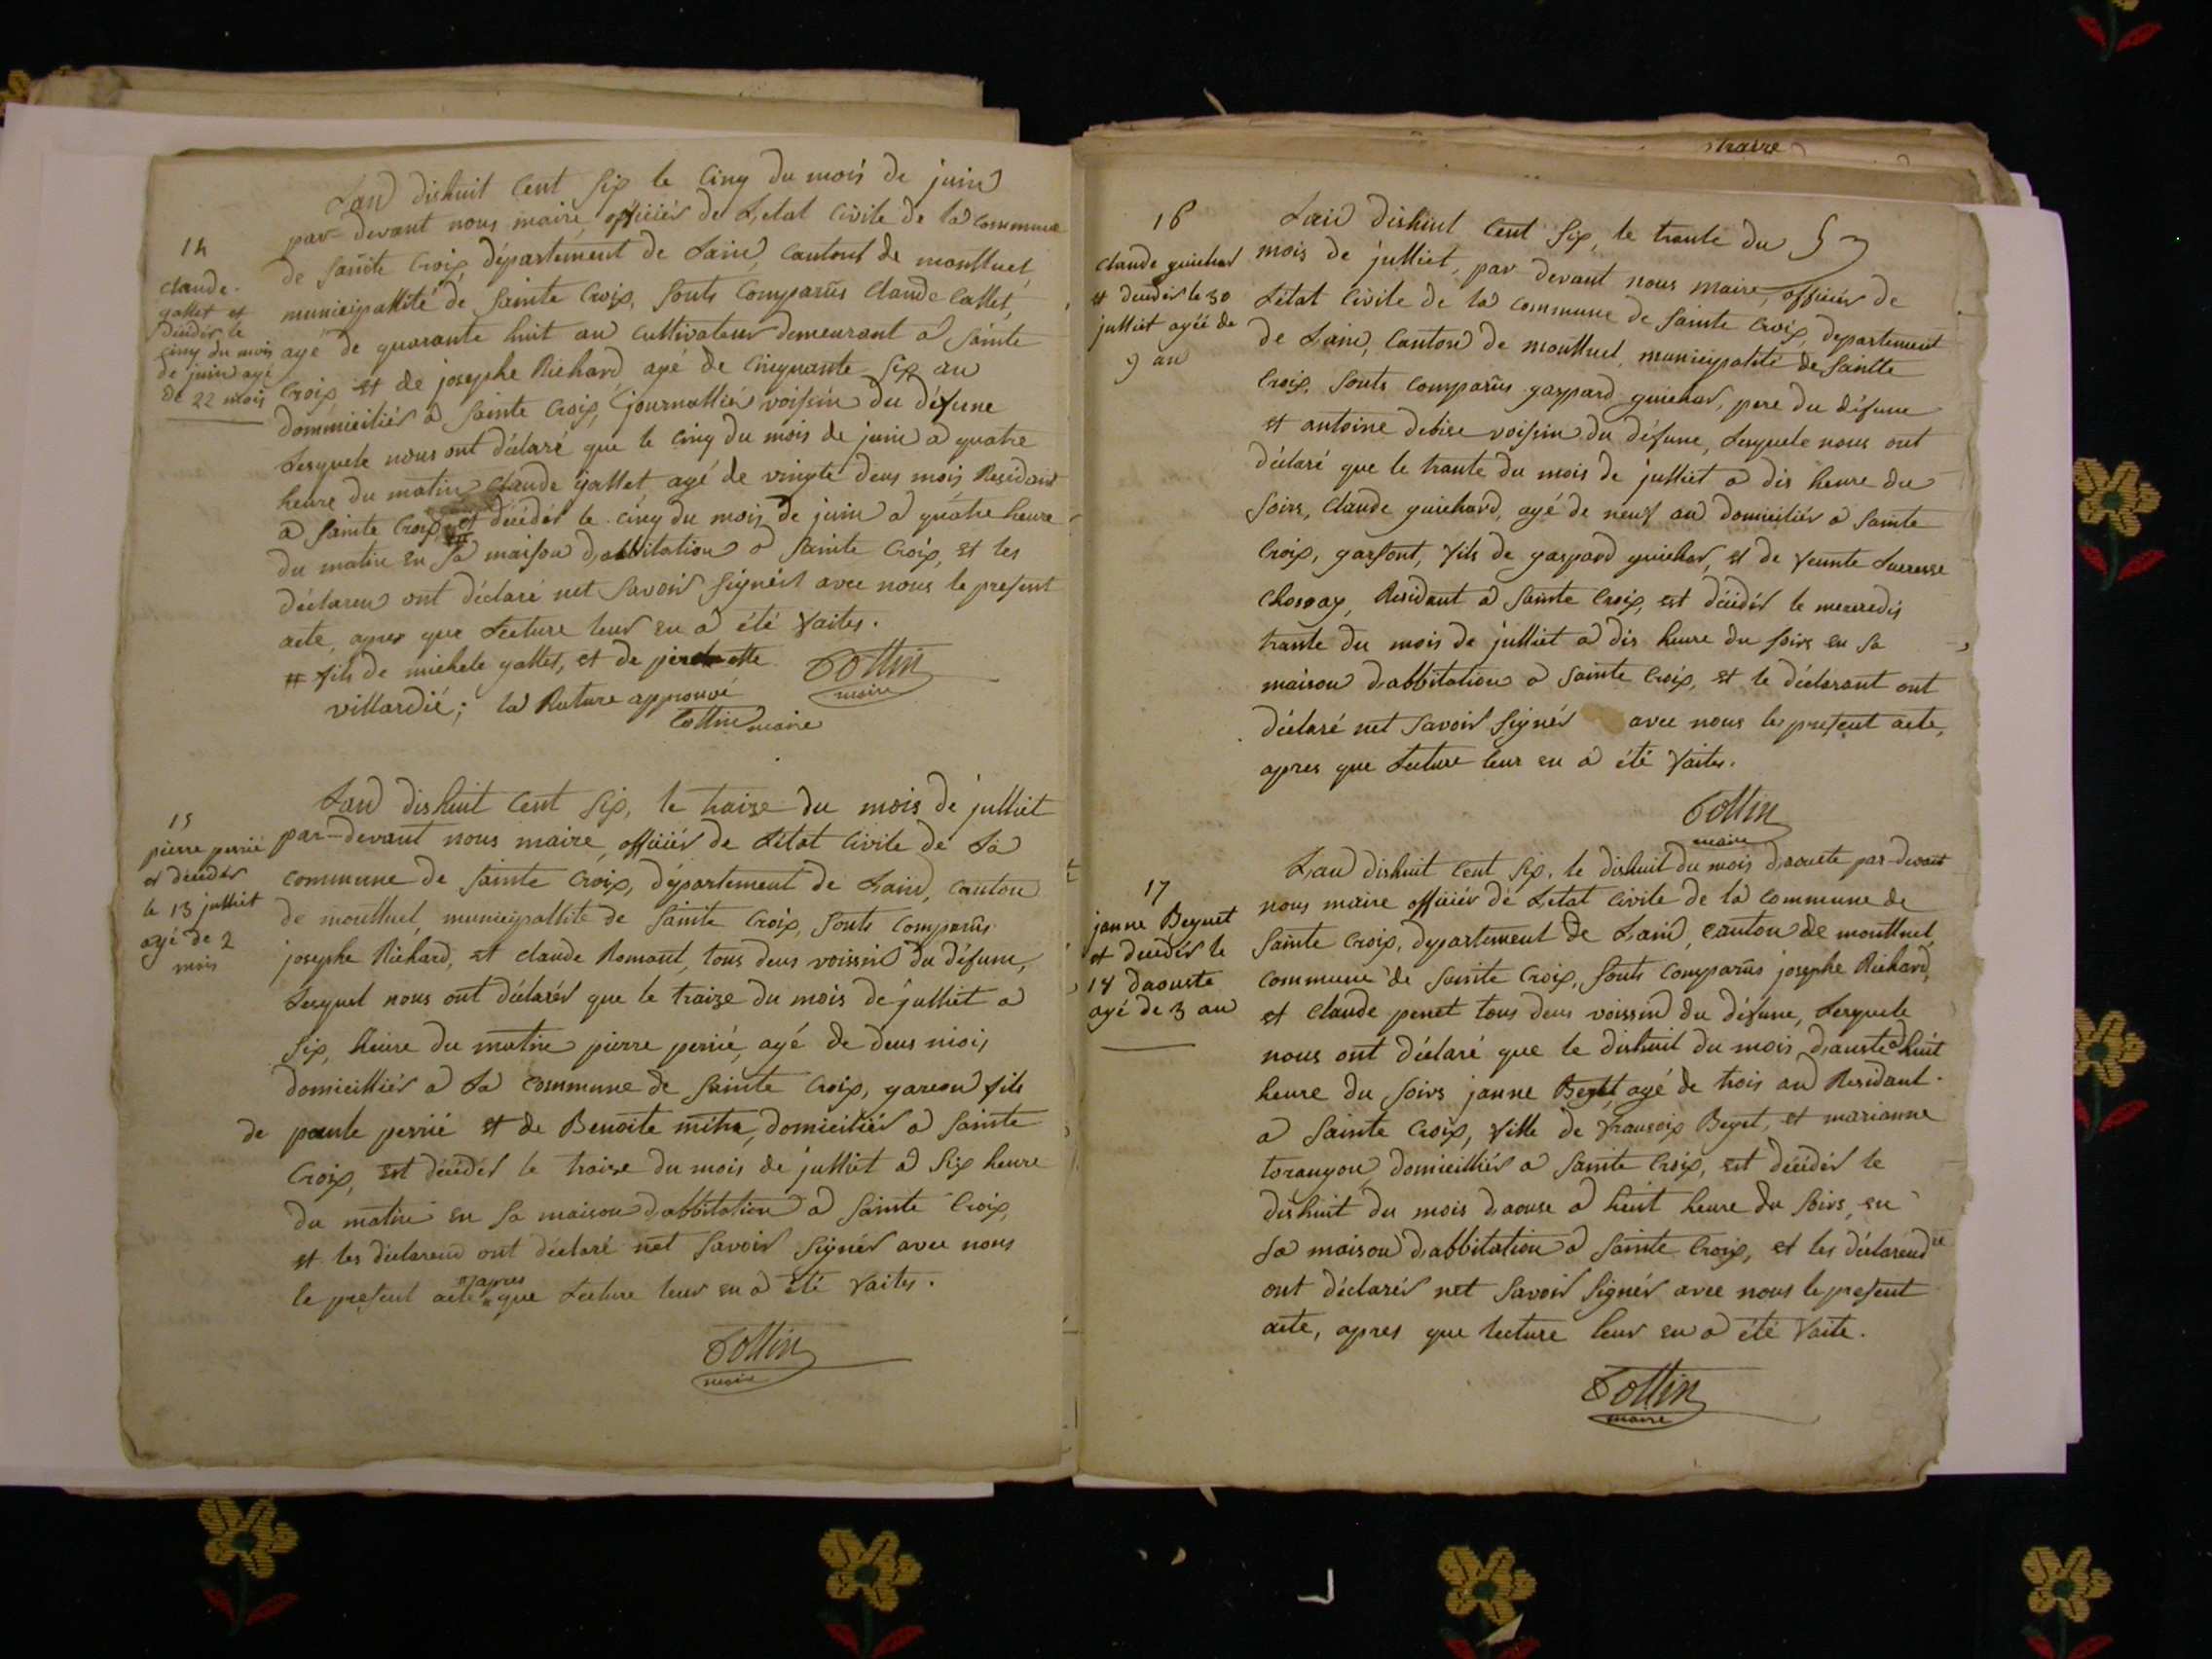 Lan dishuit Cent Six le Cinq du mois de juin
par-devant nous maire, officiér de Letat Civile de la Commune
de Sainte Croix, département de Lain, Cantont de montluel,
municipallité de Sainte Croix, Sonts Comparûs Claude Callet,
agé de quarante huit an Cultivateur demeurant a Sainte
Croix, et de josephe Richard agé de Cinquante Six an
dommiciliér a Sainte Croix, journalliér voisin du défune
Lesquele nous ont déclaré que le Cinq du mois de juin a quatre
heure du matin Claude gallet, agé de vingte deus mois Residant
a Sainte Croix, # est décédér le Cinq du mois de juin a quatre heure
du matin en Sa maison dabbitation a Sainte Croix, et les
déclaren ont déclaré net Savoir Signér avec nous le present
acte, apres que Lecture leur en a été faites.
# fils de michele gallet, et de
villardié; la Rature approuvé
Cottin
maire
Cottin maire
14
Claude
gallet et
décédér le
cinq du mois
de juin agé
de 22 mois
Lan dishuit Cent Six, le traize du mois de julliet
par-devant nous maire, officiér de Létat Civile de La
Commune de Sainte Croix, département de Lain, Canton
de montluel, municipallité de Sainte Croix, Sonts Comparûs
josephe Richard, et claude Romant, tous deus voissin du défune,
Lesquel nous ont déclarér que le traize du mois de julliet a
Six, heure du matin pierre perrié, agé de deus mois,
domicilliér a La Commune de Sainte Croix, garcon fils
de paule perrié et de Benoite mitre, domiciliér a Sainte
Croix, est décédér le traize du mois de julliet a Six heure
du matin en Sa maison dabbitation a Sainte Croix,
et les déclarend ont déclaré net Savoir Signér avec nous
le present acte apres que Lecture leur en a été faites.
Cottin
maire
15
pierre perrié
et décédér
le 13 julliet
agé de 2
mois
16
Claude guichar
et décédér le 30
julliet agéé de
9 an
Lain dishuit Cent Six, le trante du
mois de julliet, par devant nous maire, officiér de
Létat Civile de la Commune de Sainte Croix, departement
de Lain, Canton de montluel, municipalité de Saintte
Croix, Sonts Comparûs gaspard guichar, pere du défune
et antoine debise voisin du défune, Lesquele nous ont
déclaré que le trante du mois de julliet a dis heure du
Soirs, Claude guichard, agé de neuf an domiciliér a Sainte
Croix, garsont, fils de gaspard guichar, et de
Residant a Sainte Croix, est décédér le mercredis
trante du mois de julliet a dis heure du Soirs en Sa
maison dabbitation a Sainte Croix, et le déclarant ont
déclaré net Savoir Signér avec nous le present acte,
apres que Lecture leur en a été faites.
Cottin
maire
17
janne Beynet
et décédér le
18 daouste
agé de 3 an
Lan dishuit Cent Six, le dishuit du mois daouste par-devant
nous maire officiér de Letat Civile de la Commune de
Sainte Croix, département de Lain, Canton de montluel,
Commune de Sainte Croix, Sonts Comparûs josephe Richard,
et Claude penet tous deus voissin du défune, Lesquele
nous ont déclaré que le dishuit du mois dauste a huit
heure du Soirs janne agé de trois an Residant
a Sainte Croix, fille de fransoix Beynet, et marianne
torangon, domicilliér a Sainte Croix, est décédér le
dishuit du mois daouse a huit heure du Soirs, en
Sa maison dabbitation a Sainte Croix, et les déclarend
ont déclarér net Savoir Signér avec nous le present
acte, apres que lecture leur en a été faite.
Cottin
maire